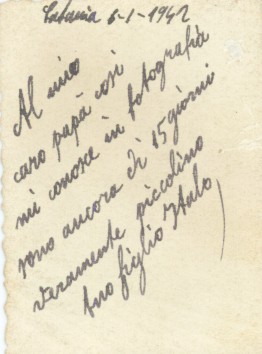 Catania 6-1-1942
Al mio
caro papà così
mi conosce in fotografia
sono ancora di 15 giorni
veramente piccolino
tuo figlio Italo